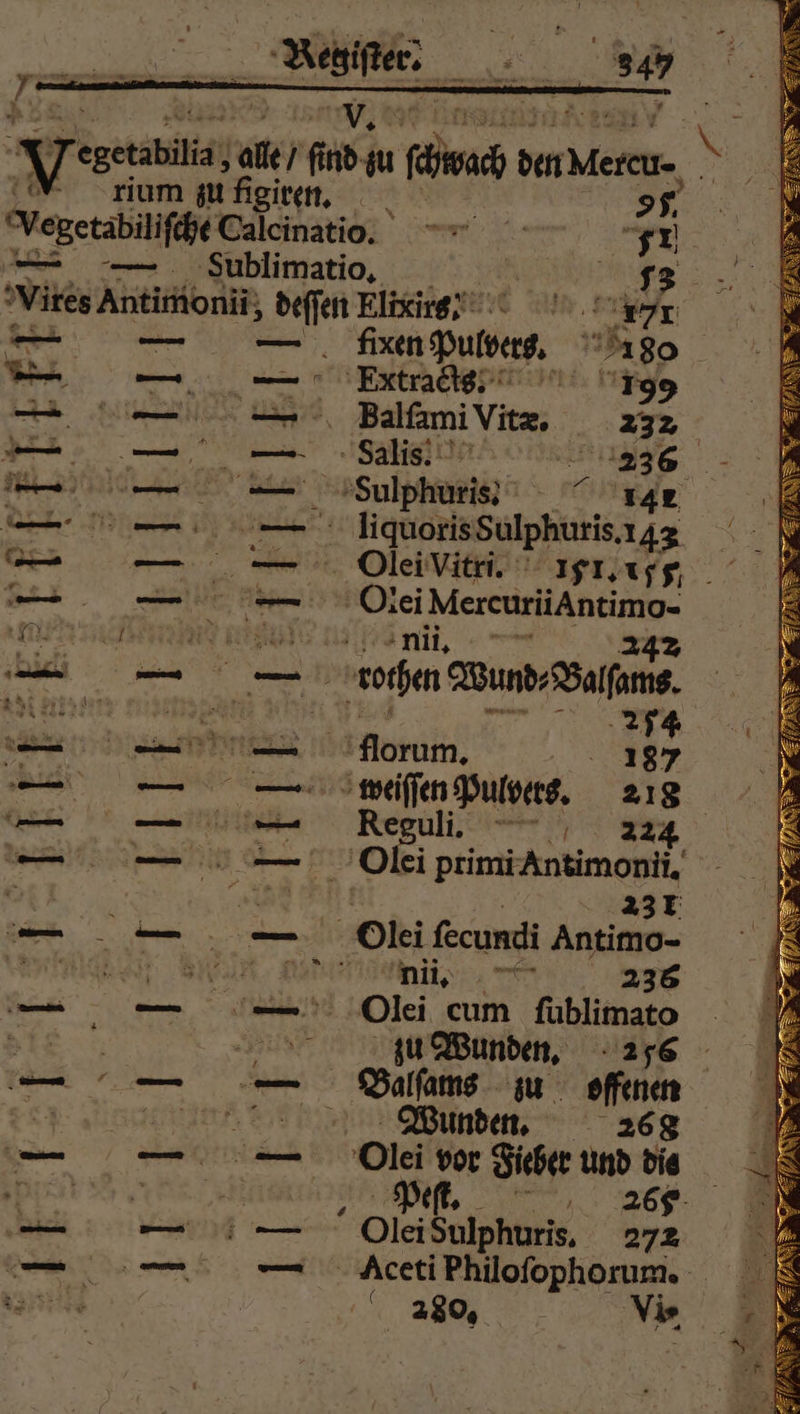 Regiſter. 347
V.
Vegetabilia, alle / ſind zu ſchwach den Mercu-
rium zu figiren. 95.
Vegetabiliſche Calcinatio. — 51
— — Sublimatio, 53
Vires Antimonii, deſſen Elixirs, 171
— — — fixen Pulvers, 180
— — — Extracts, 199
— — — Balſami Vitæ. 232
— — — Salis. 236
— — — Sulphuris, 142
— — — liquoris Sulphuris. 143
— — — Olei Vitri. 151. 155.
— — — Olei Mercurii Antimo-
nii, — 242
— — — rothen Wund-Balſams.
— 254
— — — florum. 187
— — — weiſſen Pulvers. 218
— — — Reguli. — 224
— — — Olei primi Antimonii.
231
— — — Olei ſecundi Antimo-
nii, — 236
— — — Olei cum ſublimato
zu Wunden, 256
— — — Balſams zu offenen
Wunden. 268
— — — Olei vor Fieber und die
Peſt. — 265
— — — Olei Sulphuris. 272
— — — Aceti Philoſophorum.
280, Vie